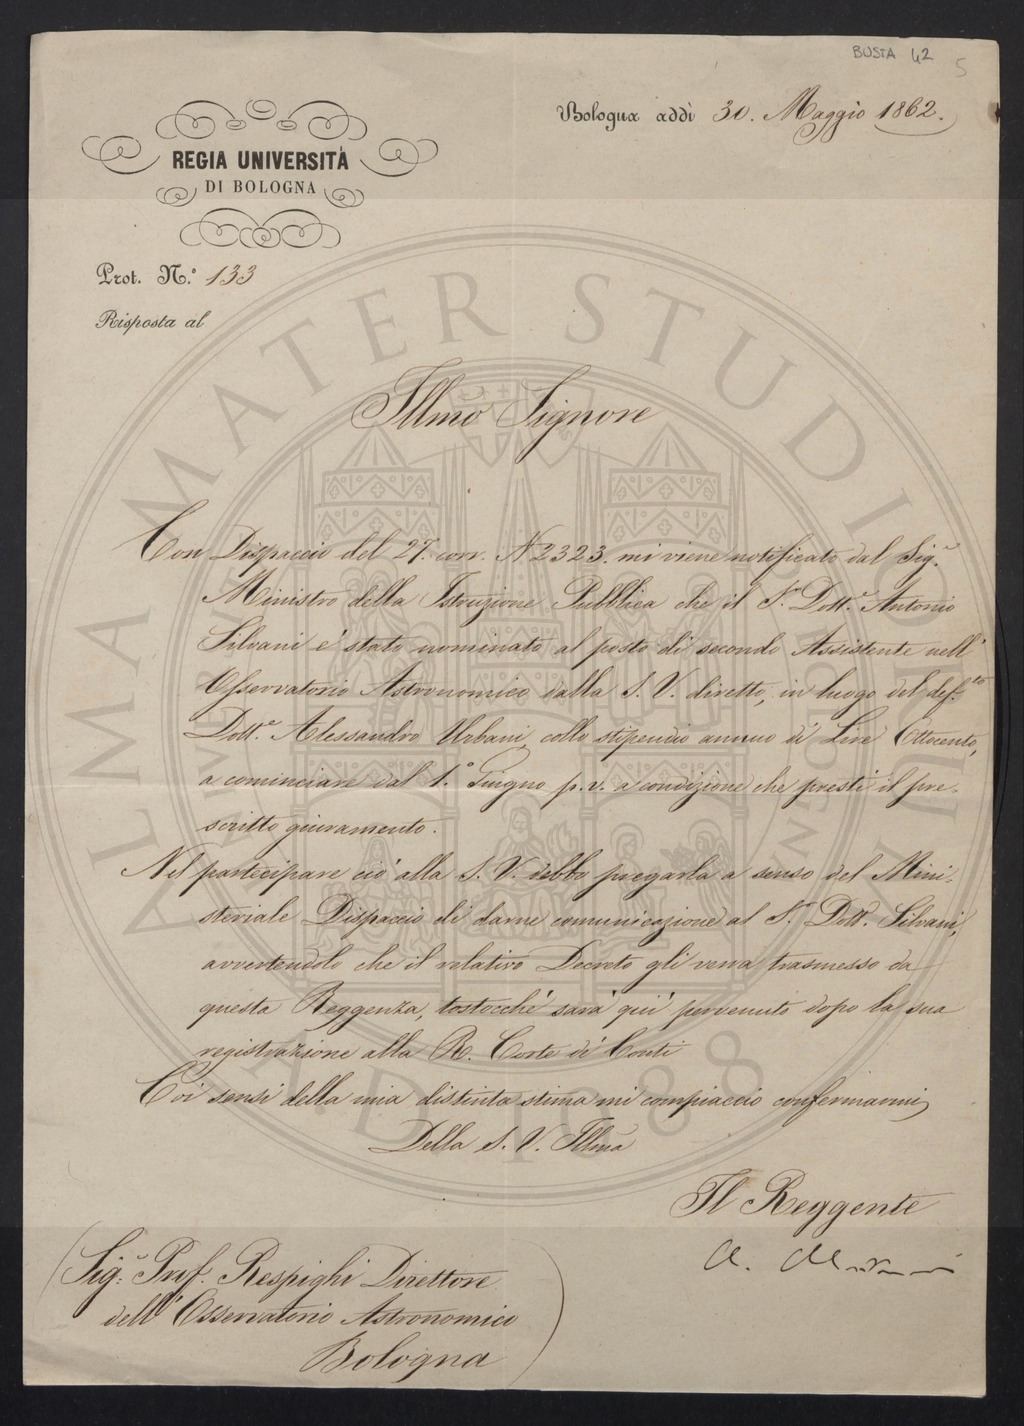 BUSTA 42
5
Bologna addì 30. Maggio 1862.
REGIA UNIVERSITÀ
DI BOLOGNA
Prot. N.° 133
Risposta al
Illmo Signore
Con Dispaccio del 27. corr. N 2323. mi viene notificato dal Sig.r
Ministro della Istruzione Pubblica che il S.r Dott.e Antonio
Silvani e' stato nominato al posto di secondo Assistente nell'
Osservatorio Astronomico dalla S. V. diretto, in luogo del def.to
Dott.e Alessandro Urbani collo stipendio annuo di Lire Ottocento,
a cominciare dal 1.° Giugno p. v. a condizione che presti il pre-
scritto giuramento.
Nel partecipare ciò alla S. V. debbo pregarla a senso del Mini-
steriale Dispaccio di darne comunicazione al S.r Dott. Silvani,
avvertendolo che il relativo Decreto gli verrà trasmesso da
questa Reggenza, tostocchè sarà quì pervenuto dopo la sua
registrazione alla R. Corte de' Conti
Coi sensi della mia distinta stima mi compiaccio confermarmi
Della S. V. Illma
Il Reggente
A.
Sig.r Prof. Respighi Direttore
dell'Osservatorio Astronomico
Bologna
ALMA MATER STUDIORUM
A.D. 1088